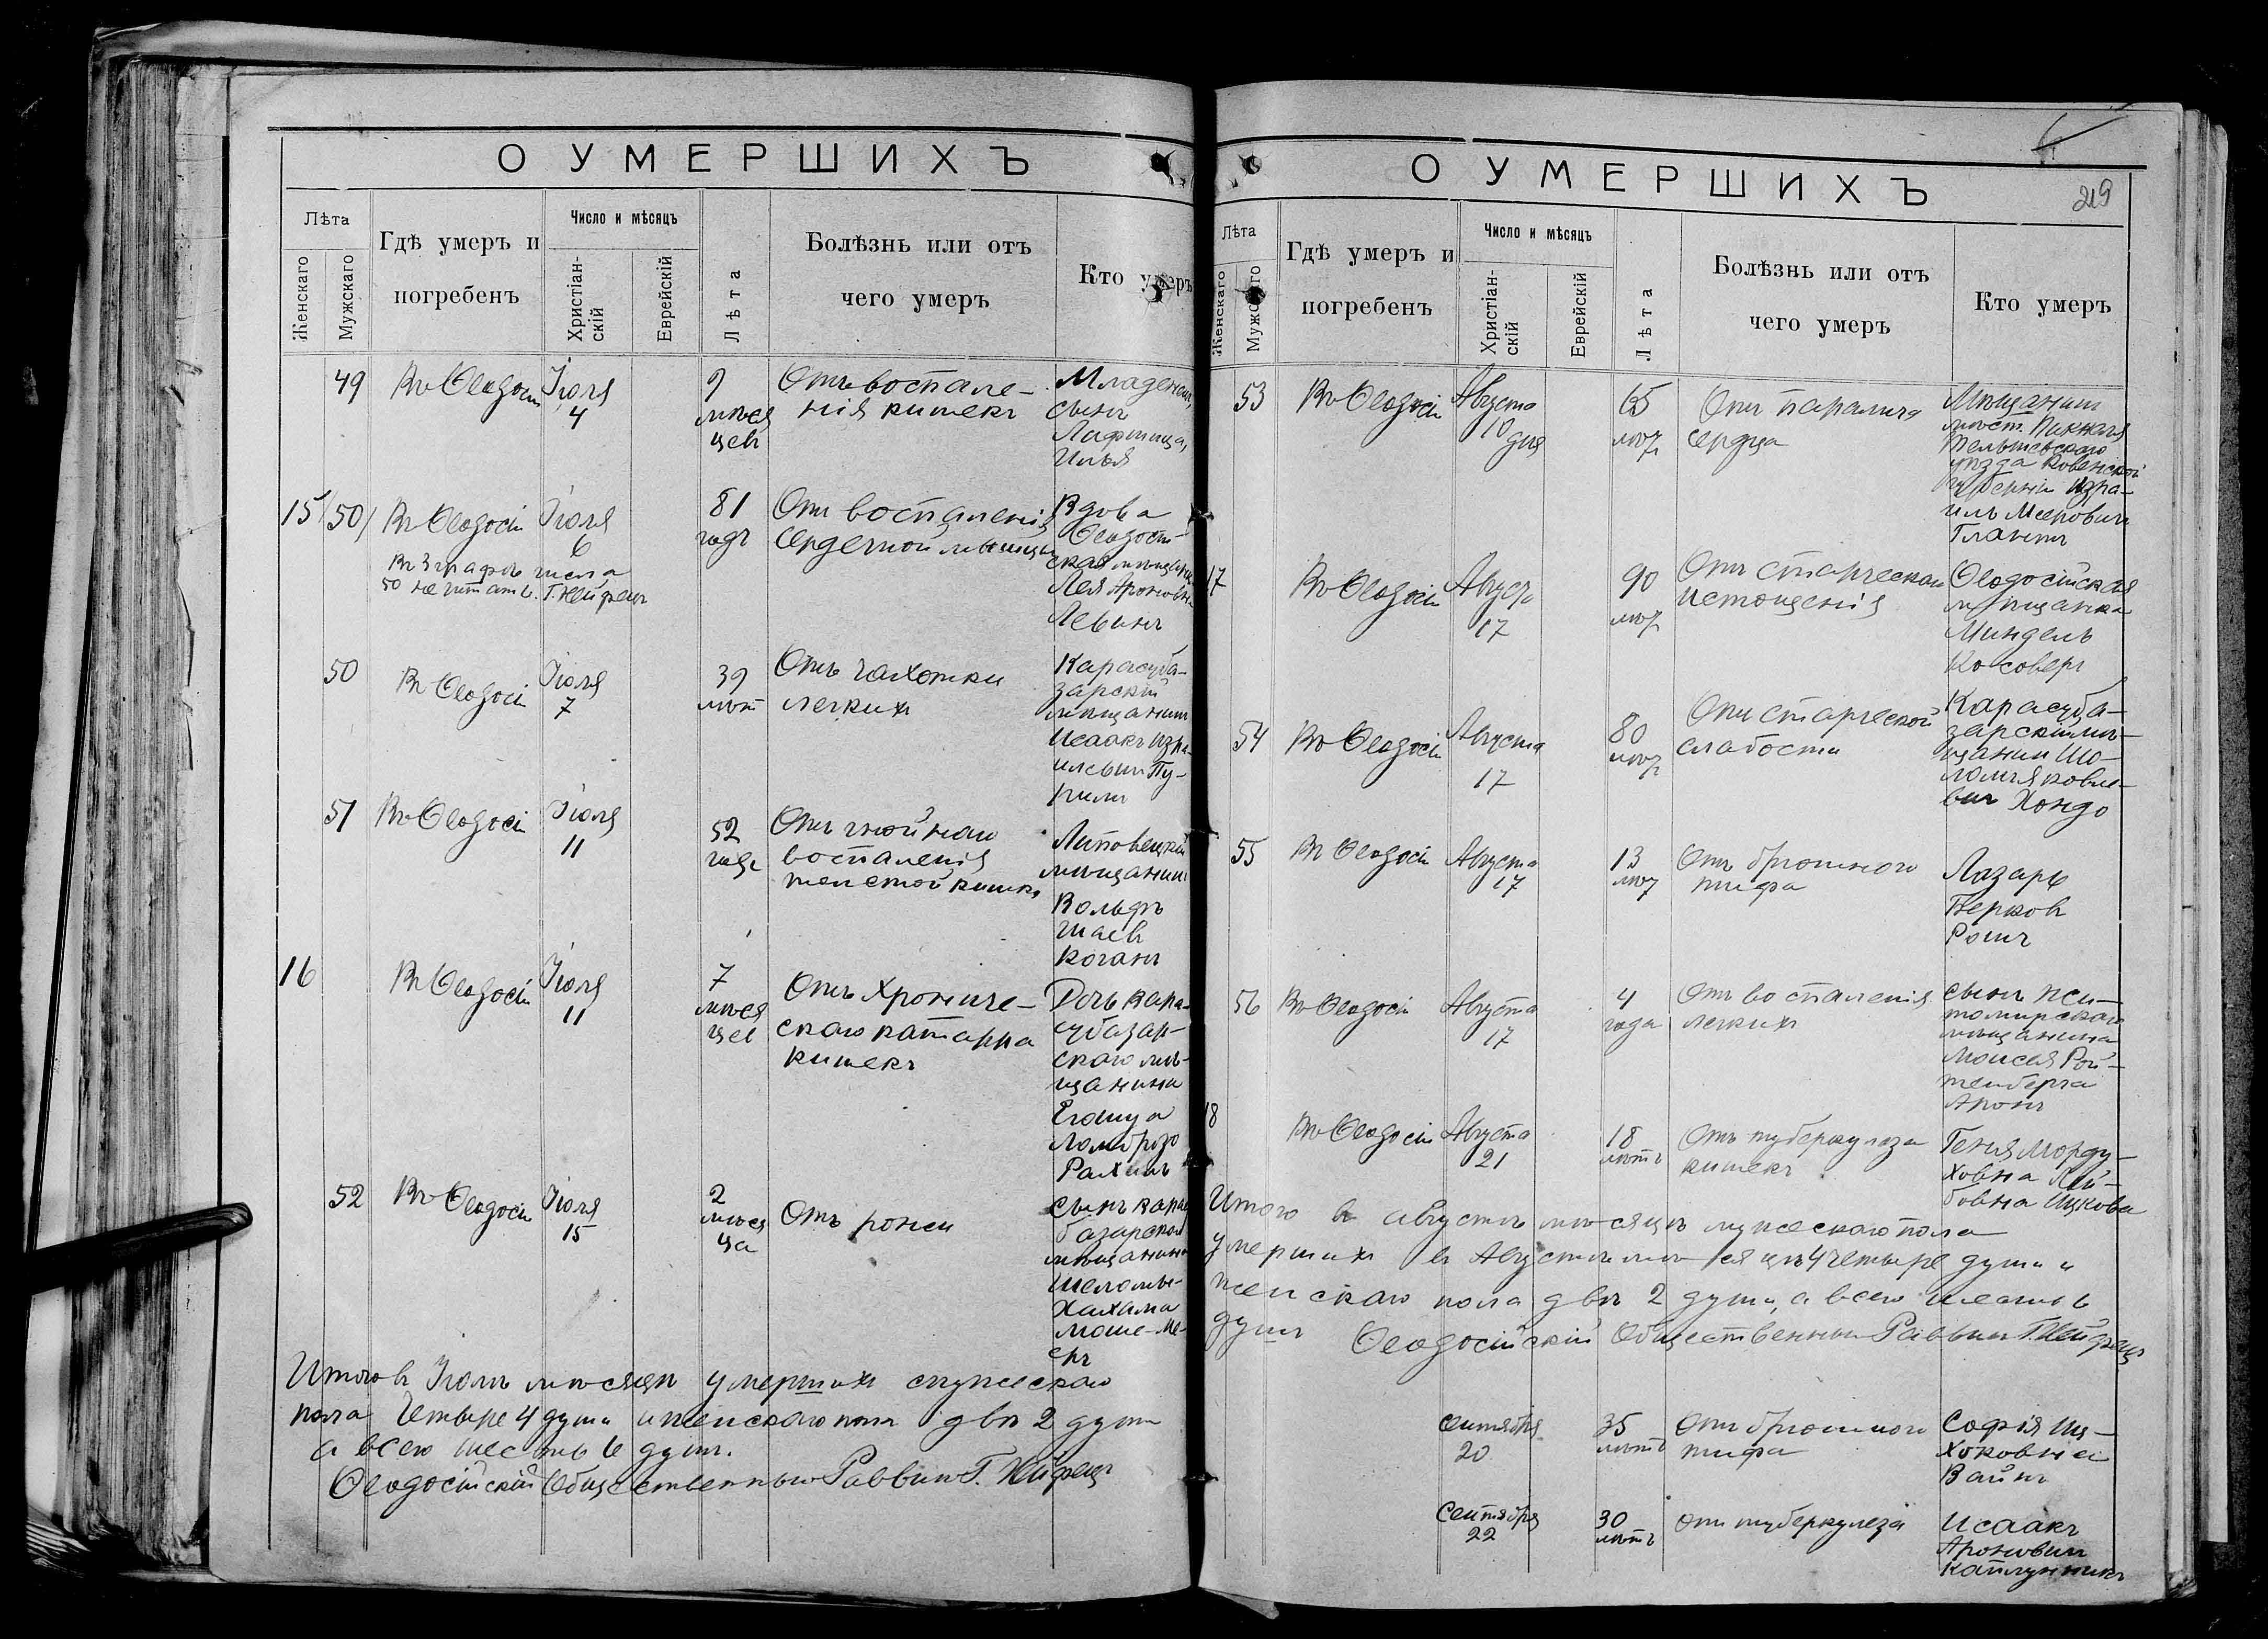 О УМЕРШИХЪ
Лѣта
Женскаго
Мужскаго
Гдѣ умеръ и
погребенъ
Число и мѣсяцъ
Христіан-
скій
Еврейскій
Лѣта
Болѣзнь или отъ
чего умеръ
Кто умеръ
49
Въ Ѳеодосіи
Іюля
4
9
мѣся
цевъ
Отъ воспале-
нія кишекъ
Младенецъ,
сынъ
Лифшица,
Илья
15
50
Въ Ѳеодосіи
Въ 3 графѣ числа
50 не читать. Г. Нейфецъ
Іюля
6
81
годъ
Отъ воспаленія
сердечной мышцы
Вдова
Ѳеодосій-
ская мѣщанка
Лея Ароновна
Левинъ
50
Въ Ѳеодосіи
Іюля
7
39
лѣтъ
Отъ чахотки
легкихъ
Карасуба-
зарскій
мѣщанинъ
Исаакъ Изра-
илевичъ Пу-
римъ
51
Въ Ѳеодосіи
Іюля
11
52
года
Отъ гнойнаго
воспаленія
толстой кишки
Липовецкій
мѣщанинъ
Вольфъ
Шаевъ
Коганъ
16
Въ Ѳеодосіи
Іюля
11
7
мѣся
цев
Отъ Хрониче-
скаго катарра
кишекъ
Дочь кара-
субазар-
скаго мѣ-
щанина
Егошуа
Ломброзо
Рахиль
52
Въ Ѳеодосіи
Іюля
15
2
мѣся
ца
Отъ рожи
Сынъ карасу
базарскаго
мѣщанина
Шеломы-
Хахама
Моше-Ме-
еръ
Итого въ Іюлѣ мѣсяцѣ умершихъ мужескаго
пола Четыре 4 души и женскаго пола двѣ 2 души
а всего шесть 6 душъ.
Ѳеодосійскій Общественный Раввинъ Г. Нейфецъ
О УМЕРШИХЪ
219
Лѣта
Женскаго
Мужскаго
Гдѣ умеръ и
погребенъ
Число и мѣсяцъ
Христіан-
скій
Еврейскій
Лѣта
Болѣзнь или отъ
чего умеръ
Кто умеръ
53
Въ Ѳеодосіи
Августа
10
дня
65
лѣт
Отъ паралича
сердца
Мѣщанинъ
мѣст.
Тельшевскаго
уѣзда Ковенской
губерніи Изра-
иль Мееровичъ
Глаттъ
17
Въ Ѳеодосіи
Августа
17
90
лѣт
Отъ старческаго
истощенія
Ѳеодосійская
мѣщанка
Миндель
Косоверъ
54
Въ Ѳеодосіи
Августа
17
80
лѣт
Отъ старческой
слабости
Карасуба-
зарскій мѣ-
щанин Шо-
ломъ Яковле-
вичъ Хондо
55
Въ Ѳеодосіи
Августа
17
13
лѣт
Отъ брюшного
тифа
Лазарь
Берковъ
Рошъ
56
Въ Ѳеодосіи
Августа
17
4
года
Отъ воспаленія
легкихъ
Сынъ Жи-
томирскаго
мѣщанина
Моисея Рой-
тенберга
Аронъ
18
Въ Ѳеодосіи
Августа
21
18
лѣтъ
Отъ туберкулеза
кишекъ
Геня Морду-
ховна Лей-
бовна Ицкова
Итого въ Августѣ мѣсяцѣ мужескаго пола
умершихъ въ Августѣ мѣсяцѣ 4 четыре души и
женскаго пола двѣ 2 души, а всего шесть 6
душъ Ѳеодосійскій Общественный Раввинъ Г. Нейфецъ
Сентября
20
35
лѣтъ
Отъ брюшного
тифа
Софія Иц-
хоковна
Вайнъ
Сентября
22
30
лѣтъ
Отъ туберкулеза
Исаакъ
Ароновичъ
Каплунникъ